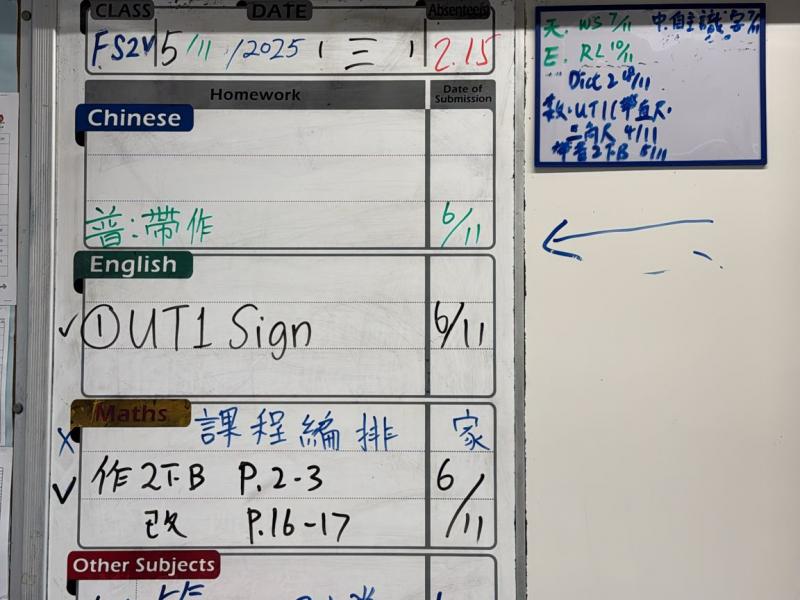 CLASS DATE Absentees
5/11/2025 (三) 2.15
Homework Date of Submission
Chinese
普:帶作 6/11
English
①UT1 Sign 6/11
Maths
課程編排 家
作2T.B P.2-3 6/11
改 P.16-17
Other Subjects
WS 7/11 中.自主識字 7/11
E. RL 10/11
Dict 2
UT1 直尺
三角尺 4/11
2T.B 5/11